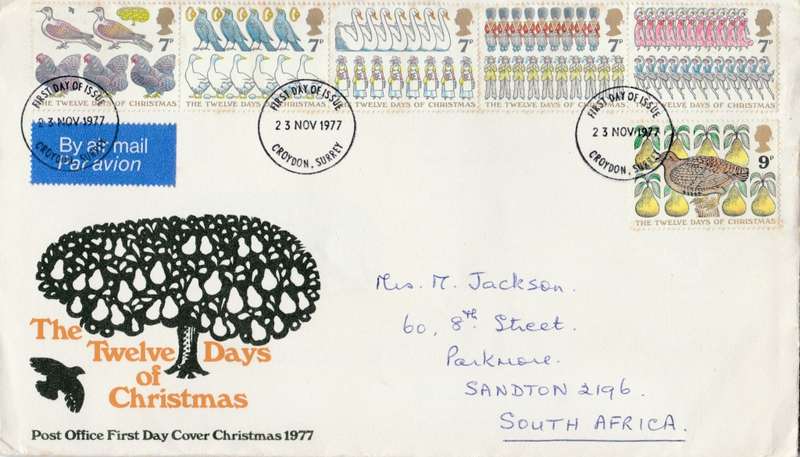 7P 7P 7P 7P 7P
THE TWELVE DAYS OF CHRISTMAS THE TWELVE DAYS OF CHRISTMAS THE TWELVE DAYS OF CHRISTMAS THE TWELVE DAYS OF CHRISTMAS THE TWELVE DAYS OF CHRISTMAS
FIRST DAY OF ISSUE
23 NOV 1977
CROYDON, SURREY
FIRST DAY OF ISSUE
23 NOV 1977
CROYDON, SURREY
FIRST DAY OF ISSUE
23 NOV 1977
CROYDON, SURREY
By air mail
Par avion
9P
THE TWELVE DAYS OF CHRISTMAS
Mrs. M. Jackson.
60, 8th Street.
Parkmore.
SANDTON 2196.
SOUTH AFRICA.
The
Twelve Days
of
Christmas
Post Office First Day Cover Christmas 1977